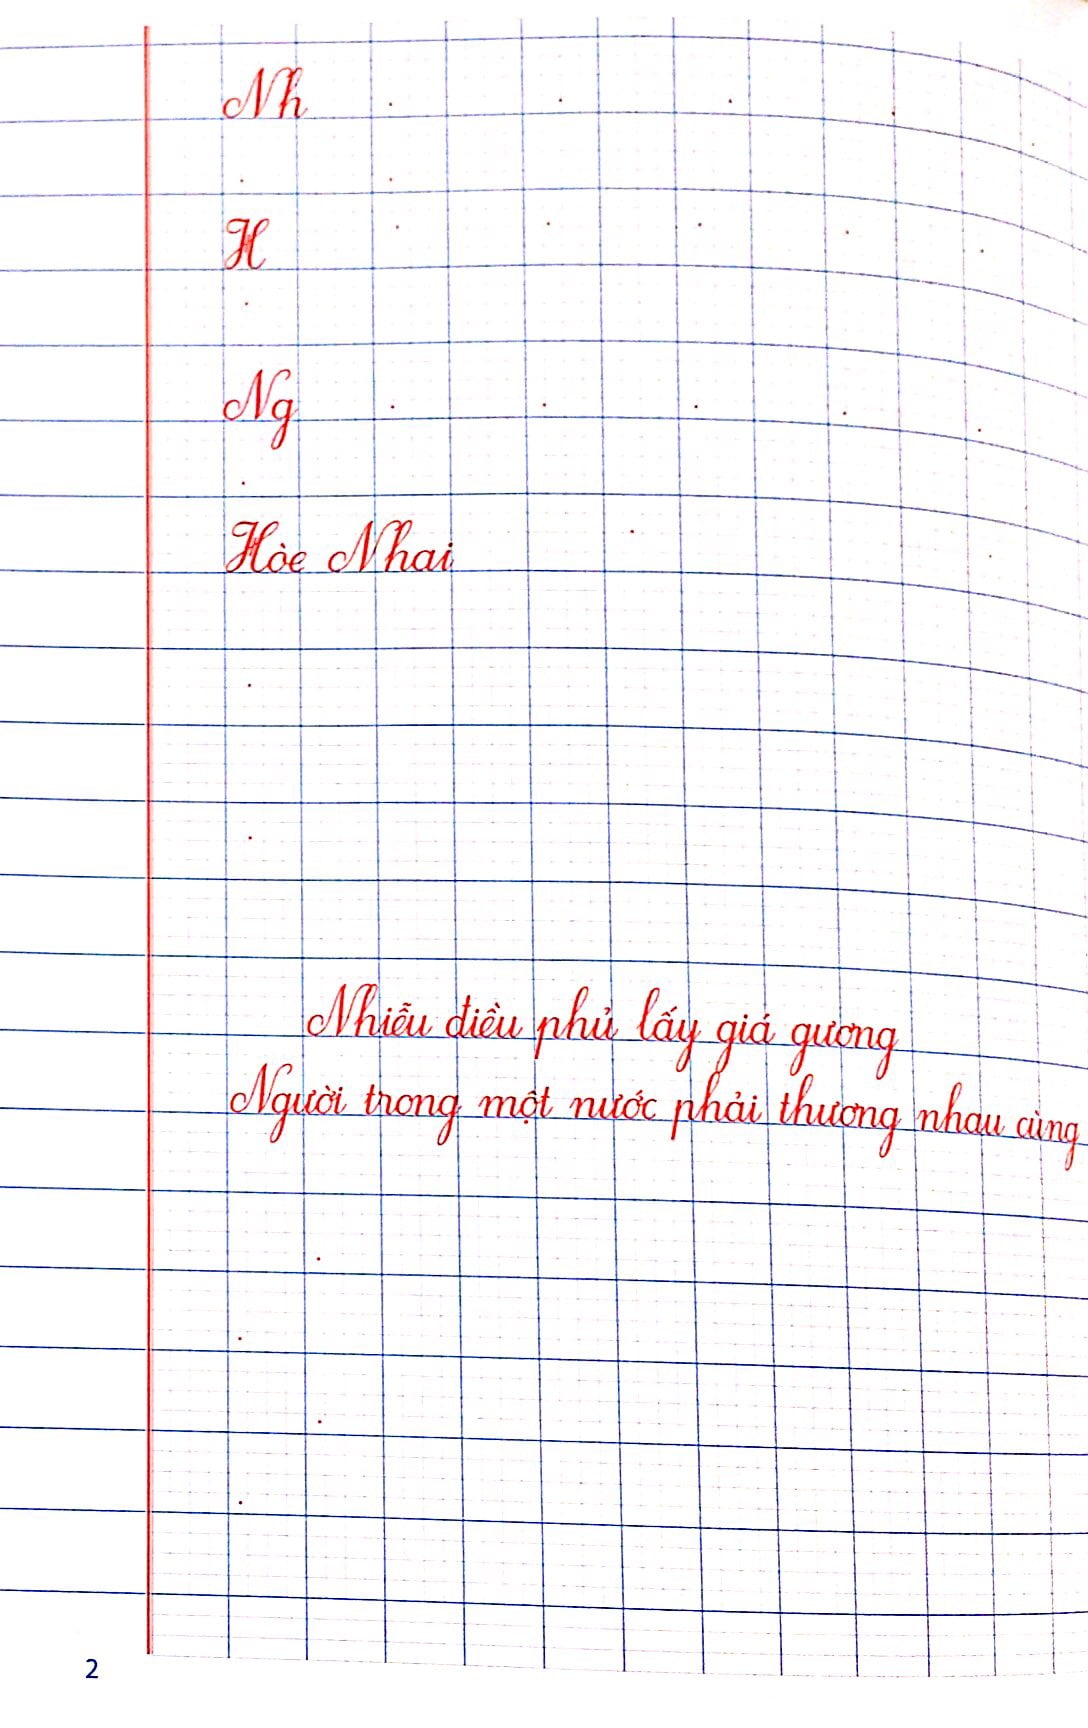 Nh
H
Ng
Hòe Nhai
Nhiễu điều phủ lấy giá gương
Người trong một nước phải thương nhau cùng
2